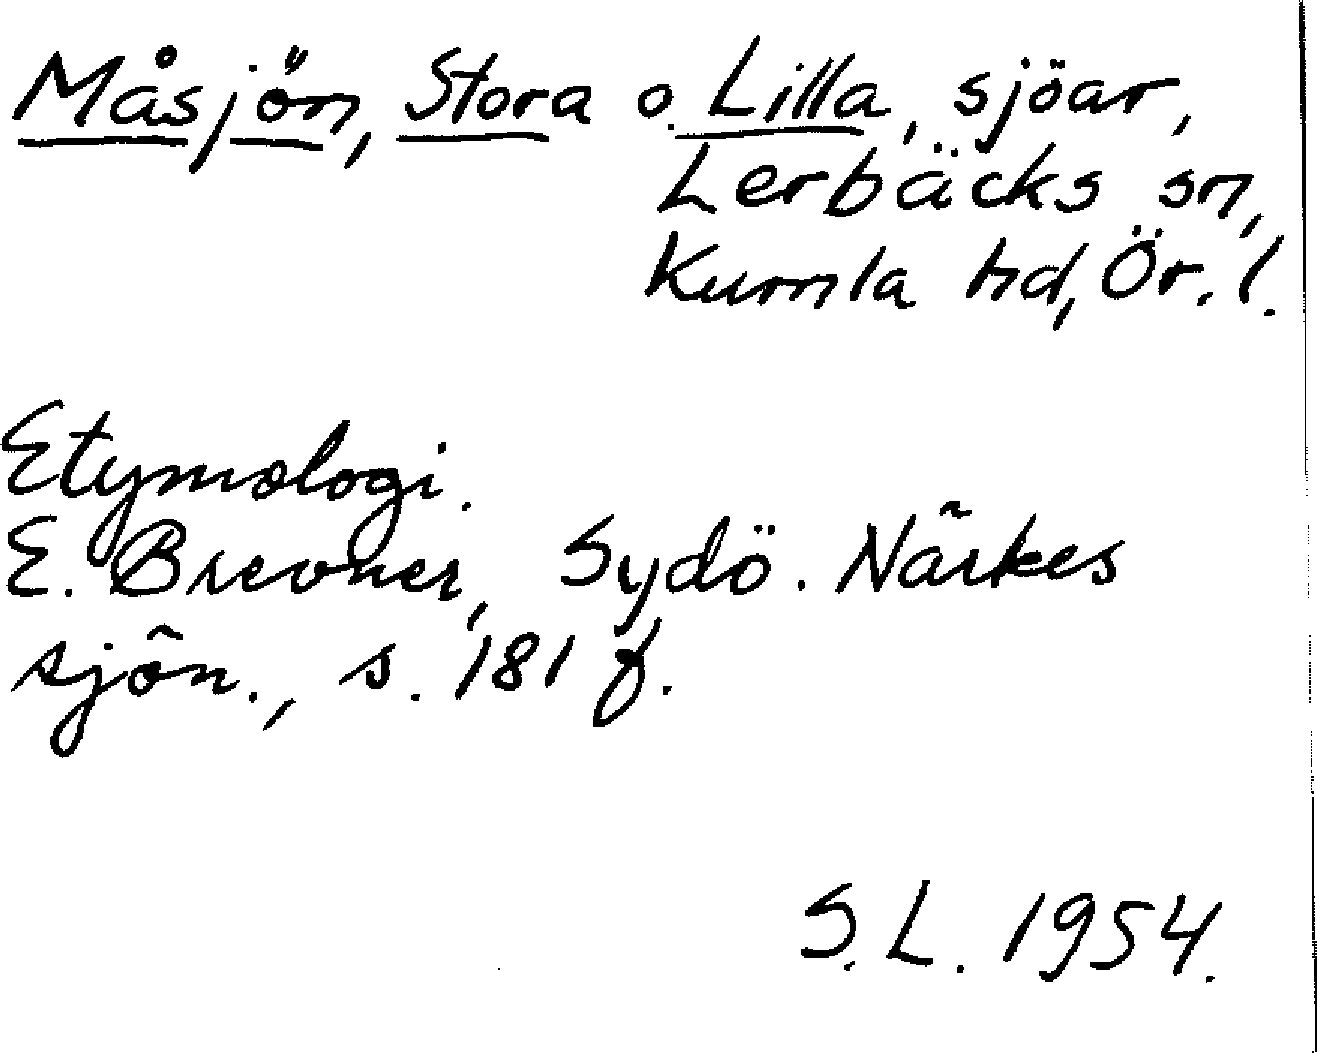 Måsjön, Stora o. Lilla, sjöar,
Lerbäcks sn,
Kumla hd, Ör. l.
Etymologi.
E. Brevner, Sydö. Närkes
sjön., s. 181 f.
S. L. 1954.